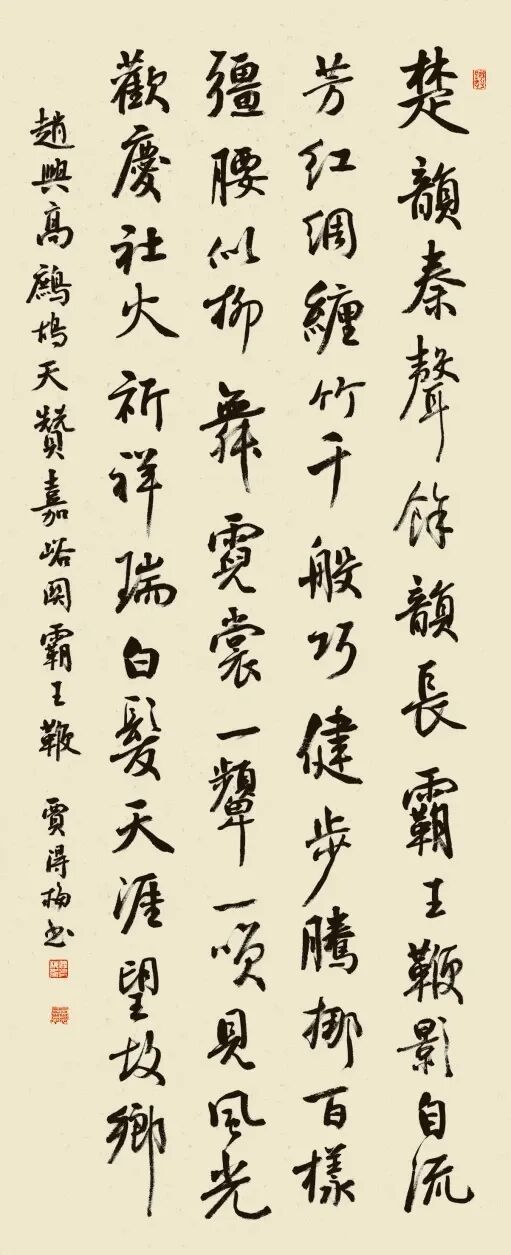 楚韻秦聲餘韻長霸王鞭影自流
芳红绸纏竹千般巧健步騰挪百樣
彊腰似柳舞霓裳一顰一笑見風光
歡慶社火祈祥瑞白髮天涯望故鄉
趙興高鷓鴣天贊嘉峪関霸王鞭 賈得梅书